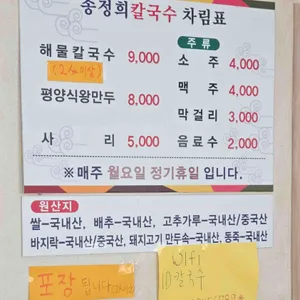 송정희칼국수 차림표
해물칼국수 9,000
(2人이상)
평양식왕만두 8,000
사 리 5,000
주 류
소 주 4,000
맥 주 4,000
막걸리 3,000
음료수 2,000
※ 매주 월요일 정기휴일 입니다.
원산지
쌀-국내산, 배추-국내산, 고추가루-국내산/중국산
바지락-국내산/중국산, 돼지고기 만두속-국내산, 동죽-국내산
포장 됩니다
Wifi
ID 칼국수